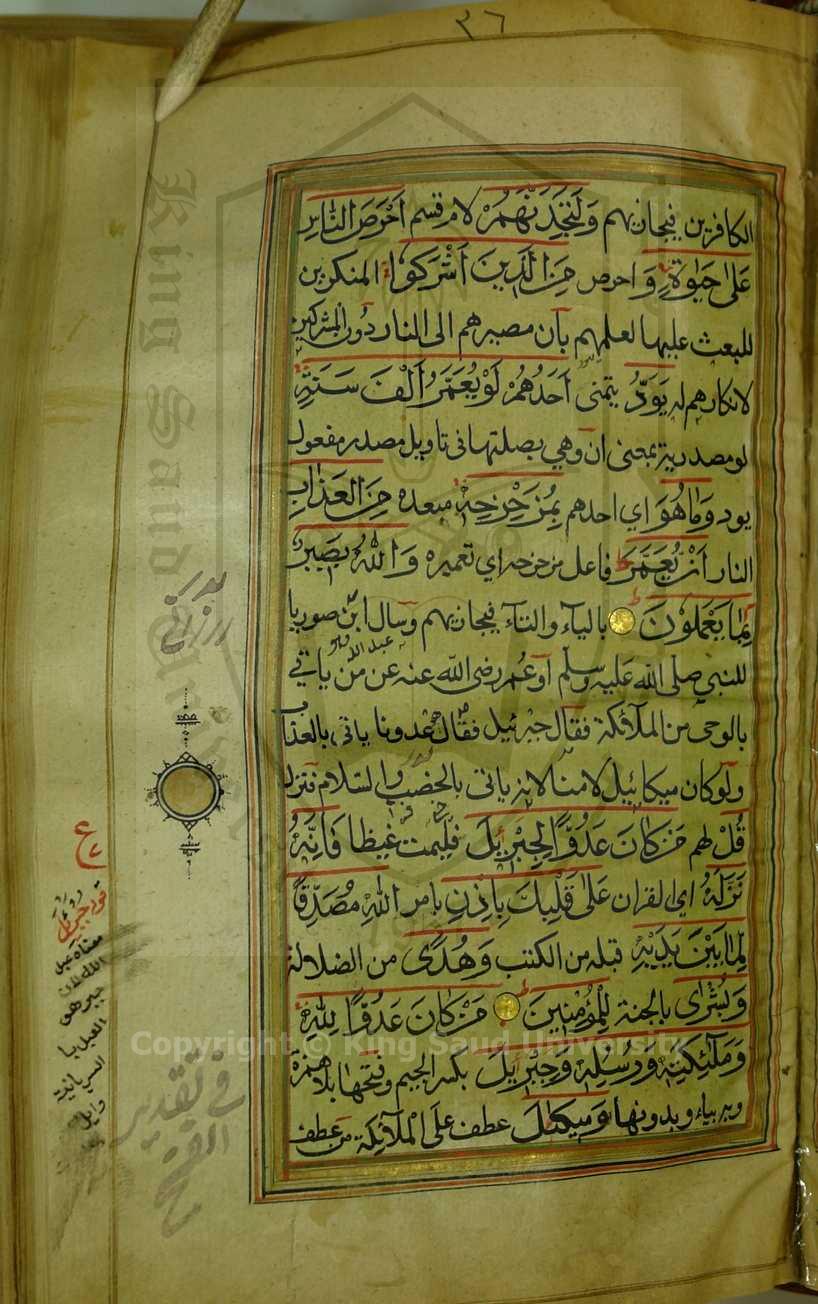 ٣٦
الكافرين فيجازيهم وَلَتَجِدَنَّهُمْ لام قسم أَحْرَصَ النَّاسِ
عَلىٰ حَيٰوةٍ وَ احرص مِنَ الَّذِينَ أَشْرَكُوا المنكرين
للبعث عليها لعلمهم بأن مصيرهم الى النار دون المشركين
لانكارهم له يَوَدُّ يتمنى أَحَدُهُمْ لَوْ يُعَمَّرُ أَلْفَ سَنَةٍ
لو مصدرية بمعنى ان وهي بصلتها في تاويل مصدر مفعول
يود وَمَا هُوَ اي احدهم بِمُزَحْزِحِهٖ مبعده مِنَ الْعَذَابِ
النار أَنْ يُعَمَّرَ فاعل مزحزحه اي تعميره وَاللّٰهُ بَصِيرٌ
بِمَا يَعْمَلُوْنَ بالياء والتاء فيجازيهم وسال ابن صوريا
عبد الله
للنبي صلى الله عليه وسلم أو عمر رضى الله عنه عن من ياتي
بالوحى من الملآئكة فقال جبرئيل فقال عدونا ياتى بالعذاب
ولو كان ميكائيل لامنا لانه ياتى بالخضب والسّلام فنزل
قُلْ لهم مَنْ كَانَ عَدُوًّا لِجِبْرِيلَ فليمت غيظا فَاِنَّهٗ
نَزَّلَهٗ اي القران عَلىٰ قَلْبِكَ بِاِذْنِ بامر اللّٰهِ مُصَدِّقًا
لِمَا بَيْنَ يَدَيْهِ قبله من الكتب وَهُدًى من الضلالة
وَبُشْرٰى بالجنة لِلْمُؤْمِنِينَ مَنْ كَانَ عَدُوًّا لِلّٰهِ
وَمَلٰٓئِكَتِهٖ وَرُسُلِهٖ وَجِبْرِيلَ بكسر الجيم وفتحها بلا همزة
وبه بياء وبدونها وَمِيكٰىلَ عطف على الملآئكة من عطف
قوله جبريل
معناه عبد
الله لان
جبر هو
العبد با
السريانية
وايل
في تقدير
الفتح
King Saud University
Copyright © King Saud University